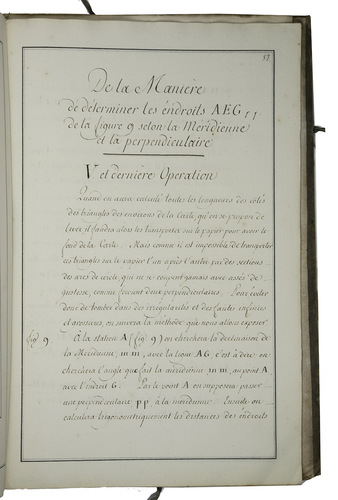 De la Manière
de déterminer les endroits AEG
de la figure 9 selon la Méridienne
et la perpendiculaire
V et dernière Operation
Quand on aura calculé toutes les longueurs des côtés
des triangles des environs de la Carte qu'on se propose de
lever, il faudra alors les transporter sur le papier pour avoir le
fond de la Carte. Mais comme il est impossible de transporter
ces triangles sur le papier l'un après l'autre par des sections
des arcs de cercle, qui ne se coupent jamais avec assés de
justesse, comme feroient deux perpendiculaires. Pour éviter
donc de tomber dans des irrégularités et des fautes infinies
et grossieres, on suivra la méthode que nous allons exposer
fig 9. À la station A (fig. 9) on cherchera la déclinaison de
la Méridienne, m m, avec la ligne AG, c'est à dire on
cherchera l'angle que fait la méridienne m m, au point A
avec l'endroit G. Par le point A on supposera passer
une perpendiculaire p p à la méridienne. Ensuite on
calculera trigonométriquement les distances des endroits